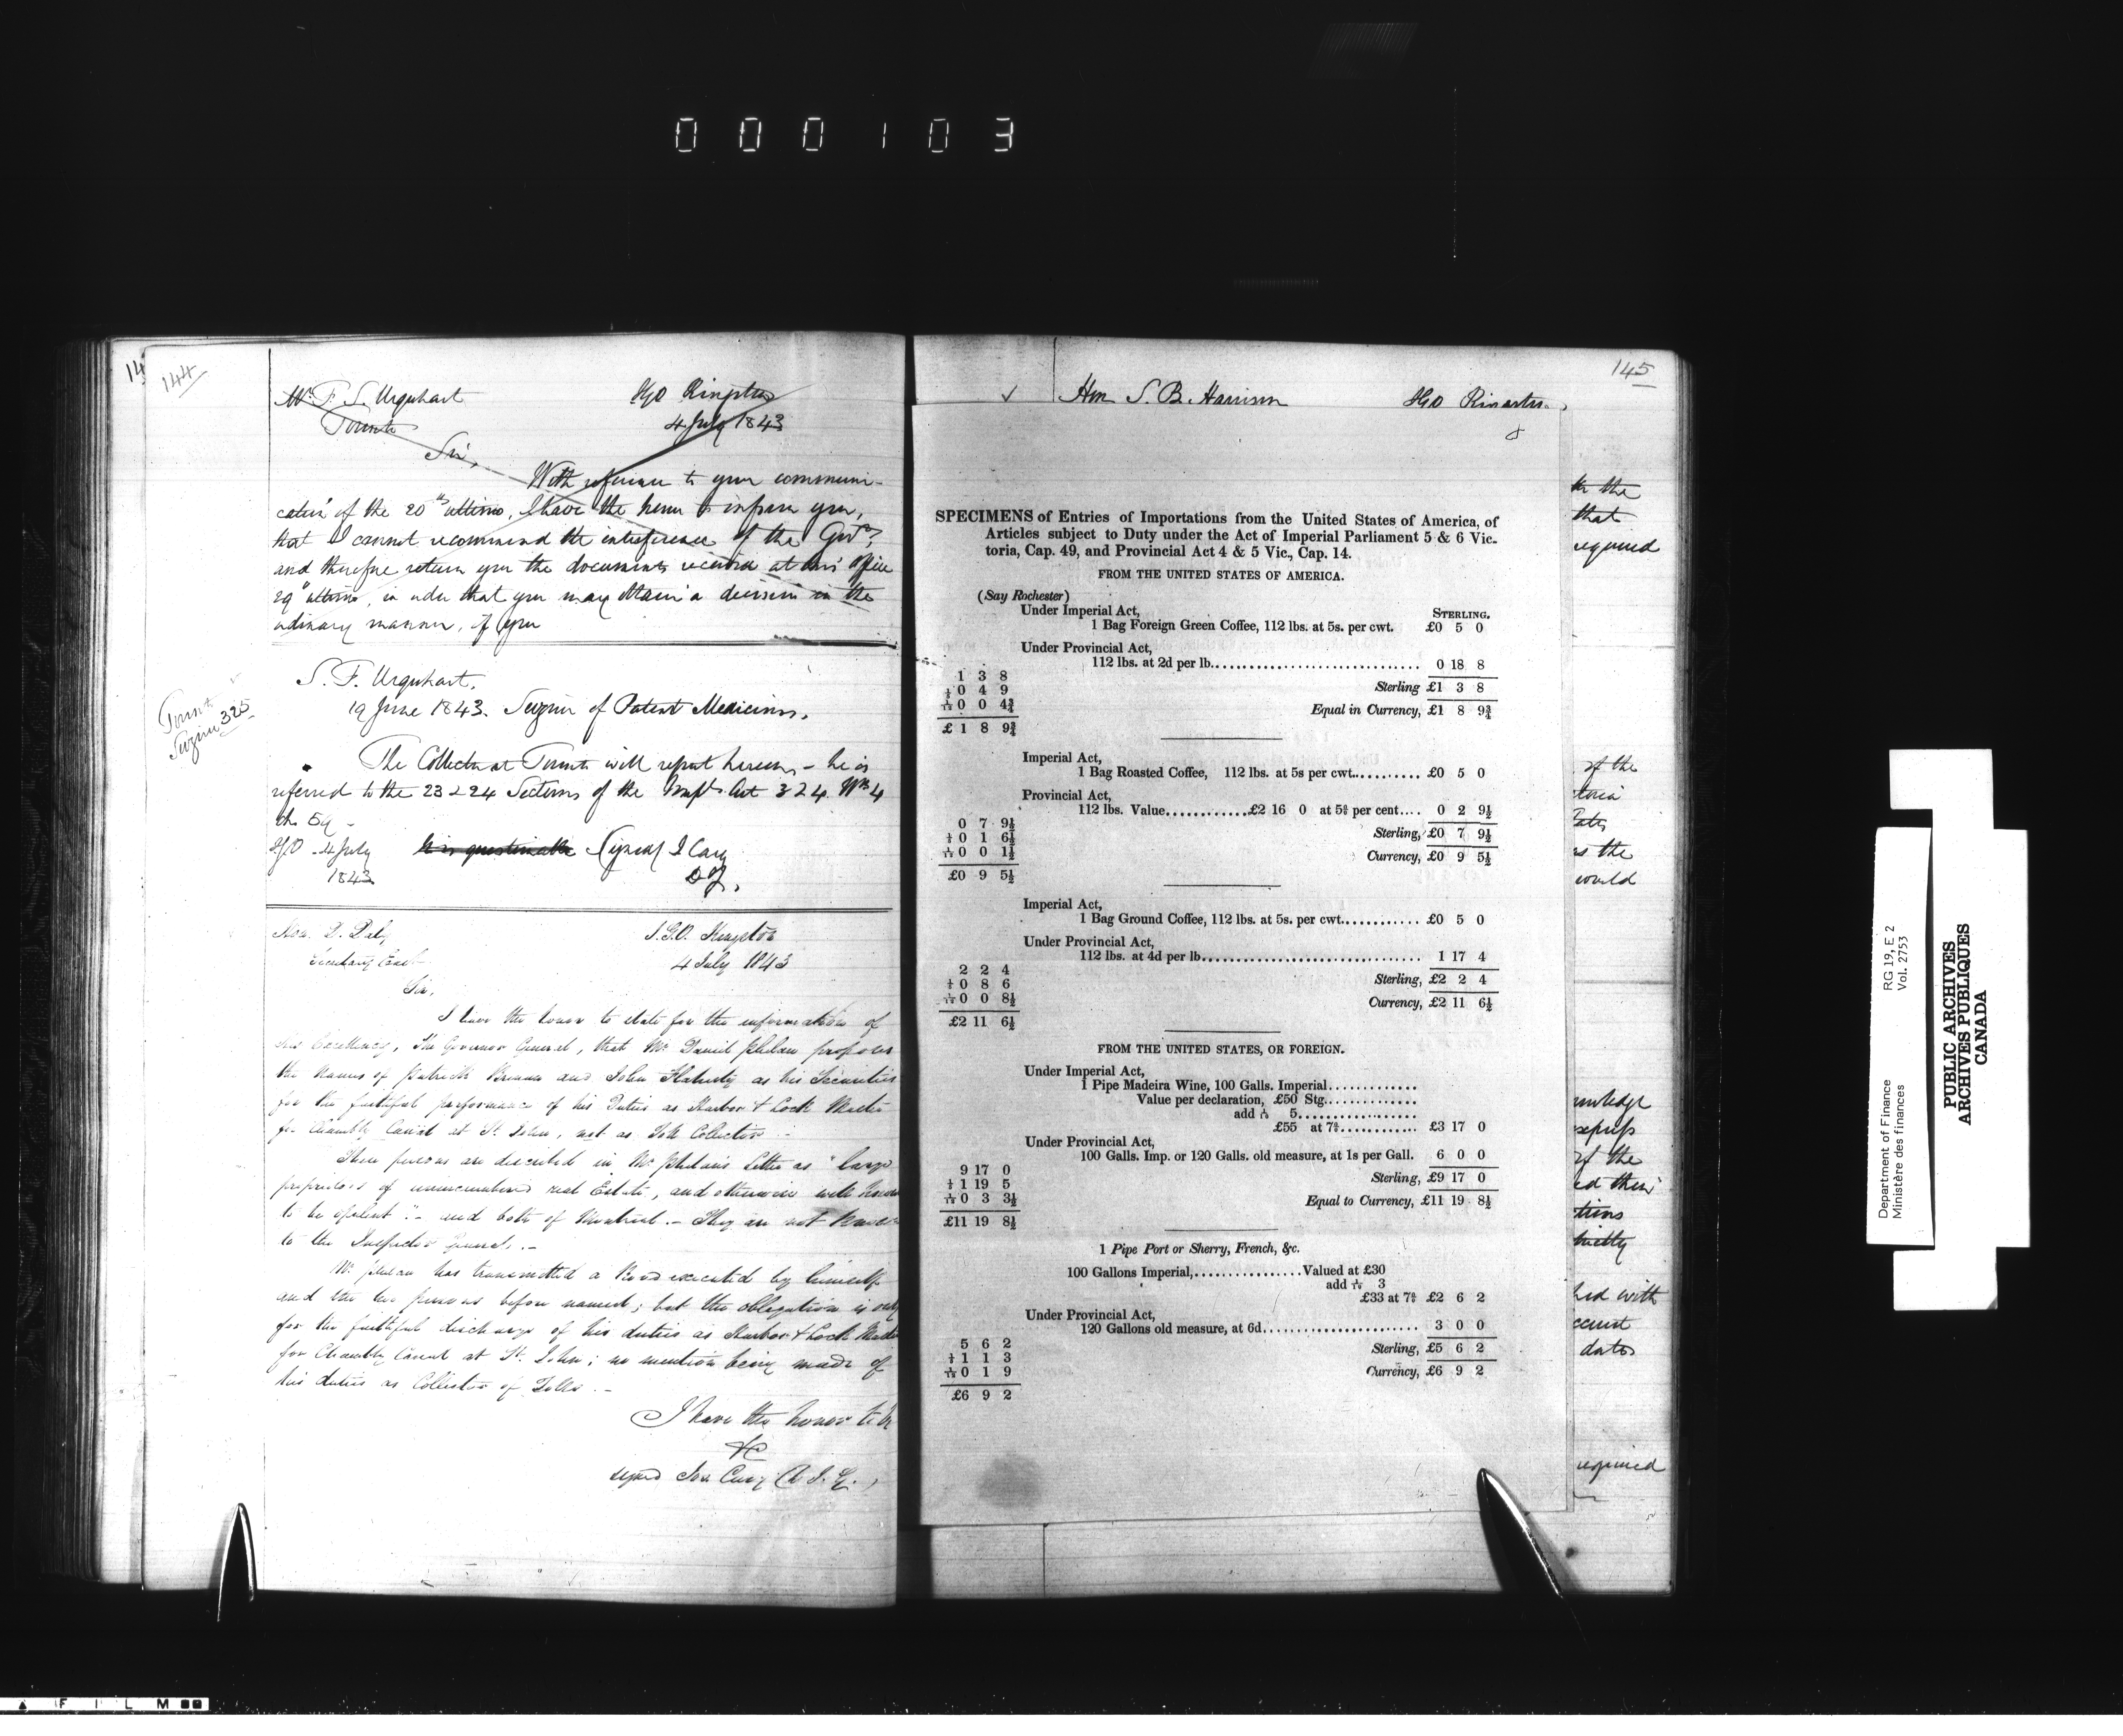 000103
144
Mr F. S. Urquhart IGO Kingston
Toronto 4 July 1843
Sir,
With reference to your communi-
cation of the 20th ultimo, I have the honor to inform you,
that I cannot recommend the interference of the Govt,
and therefore return you the documents received at this Office
29th ultimo, in order that you may obtain a decision in the
ordinary manner, if you
S. F. Urquhart,
19 June 1843. Seizure of Patent Medicines,
Toronto
Seizure 325
The Collector at Toronto will report hereon - he is
referred to the 23 & 24 Sections of the Impl Act 3 & 4 Wm 4
Ch 59 -
IGO 4 July
1843
It is questionable (signed) J Cary
DIG,
Hon. D. Daly I.G.O. Kingston
Secretary East 4 July 1843
Sir,
I have the honor to state for the information of
His Excellency, The Governor General, that Mr Daniel Phelan proposes
the names of Patrick Brennan and John Flaherty as his Securities
for the faithful performance of his Duties as Harbor & Lock Master
for Chambly Canal at St. John, not as Toll Collector -
These persons are described in Mr Phelan's Letter as "large
proprietors of unencumbered real Estate, and otherwise well known
to be opulent" - and both of Montreal. - They are not known
to the Inspector General. -
Mr Phelan has transmitted a Bond executed by himself
and the two persons before named; but the obligation is only
for the faithful discharge of his duties as Harbor & Lock Master
for Chambly Canal at St. John; no mention being made of
his duties as Collector of Tolls. -
I have the honor to be
&c
signed Jos. Cary D. I. G.,
145
Hon S. B. Harrison IGO Kingston
8
SPECIMENS of Entries of Importations from the United States of America, of
Articles subject to Duty under the Act of Imperial Parliament 5 & 6 Vic-
toria, Cap. 49, and Provincial Act 4 & 5 Vic., Cap. 14.
FROM THE UNITED STATES OF AMERICA.
(Say Rochester)
Under Imperial Act, STERLING.
1 Bag Foreign Green Coffee, 112 lbs. at 5s. per cwt. £0 5 0
Under Provincial Act,
112 lbs. at 2d per lb. 0 18 8
1 3 8
Sterling £1 3 8
1/5 0 4 9
1/12 0 0 4¾
Equal in Currency, £1 8 9¾
£ 1 8 9¾
Imperial Act,
1 Bag Roasted Coffee, 112 lbs. at 5s per cwt.......... £0 5 0
Provincial Act,
112 lbs. Value............£2 16 0 at 5⅌ per cent.... 0 2 9½
0 7 9½
Sterling, £0 7 9½
1/5 0 1 6½
1/12 0 0 1½
Currency, £0 9 5½
£0 9 5½
Imperial Act,
1 Bag Ground Coffee, 112 lbs. at 5s. per cwt........... £0 5 0
Under Provincial Act,
112 lbs. at 4d per lb. 1 17 4
2 2 4
Sterling, £2 2 4
1/5 0 8 6
1/12 0 0 8½
Currency, £2 11 6½
£2 11 6½
FROM THE UNITED STATES, OR FOREIGN.
Under Imperial Act,
1 Pipe Madeira Wine, 100 Galls. Imperial.............
Value per declaration, £50 Stg.............
add 1/10 5................
£55 at 7⅌............ £3 17 0
Under Provincial Act,
100 Galls. Imp. or 120 Galls. old measure, at 1s per Gall. 6 0 0
9 17 0
Sterling, £9 17 0
1/5 1 19 5
1/12 0 3 3½
Equal to Currency, £11 19 8½
£11 19 8½
1 Pipe Port or Sherry, French, &c.
100 Gallons Imperial,................Valued at £30
add 1/10 3
£33 at 7⅌ £2 6 2
Under Provincial Act,
120 Gallons old measure, at 6d. 3 0 0
5 6 2
Sterling, £5 6 2
1/5 1 1 3
1/12 0 1 9
Currency, £6 9 2
£6 9 2
the
that
required
of the
would
of the
with
dates
required
Department of Finance
Ministère des finances
RG 19, E 2
Vol. 2753
PUBLIC ARCHIVES
ARCHIVES PUBLIQUES
CANADA
FILM